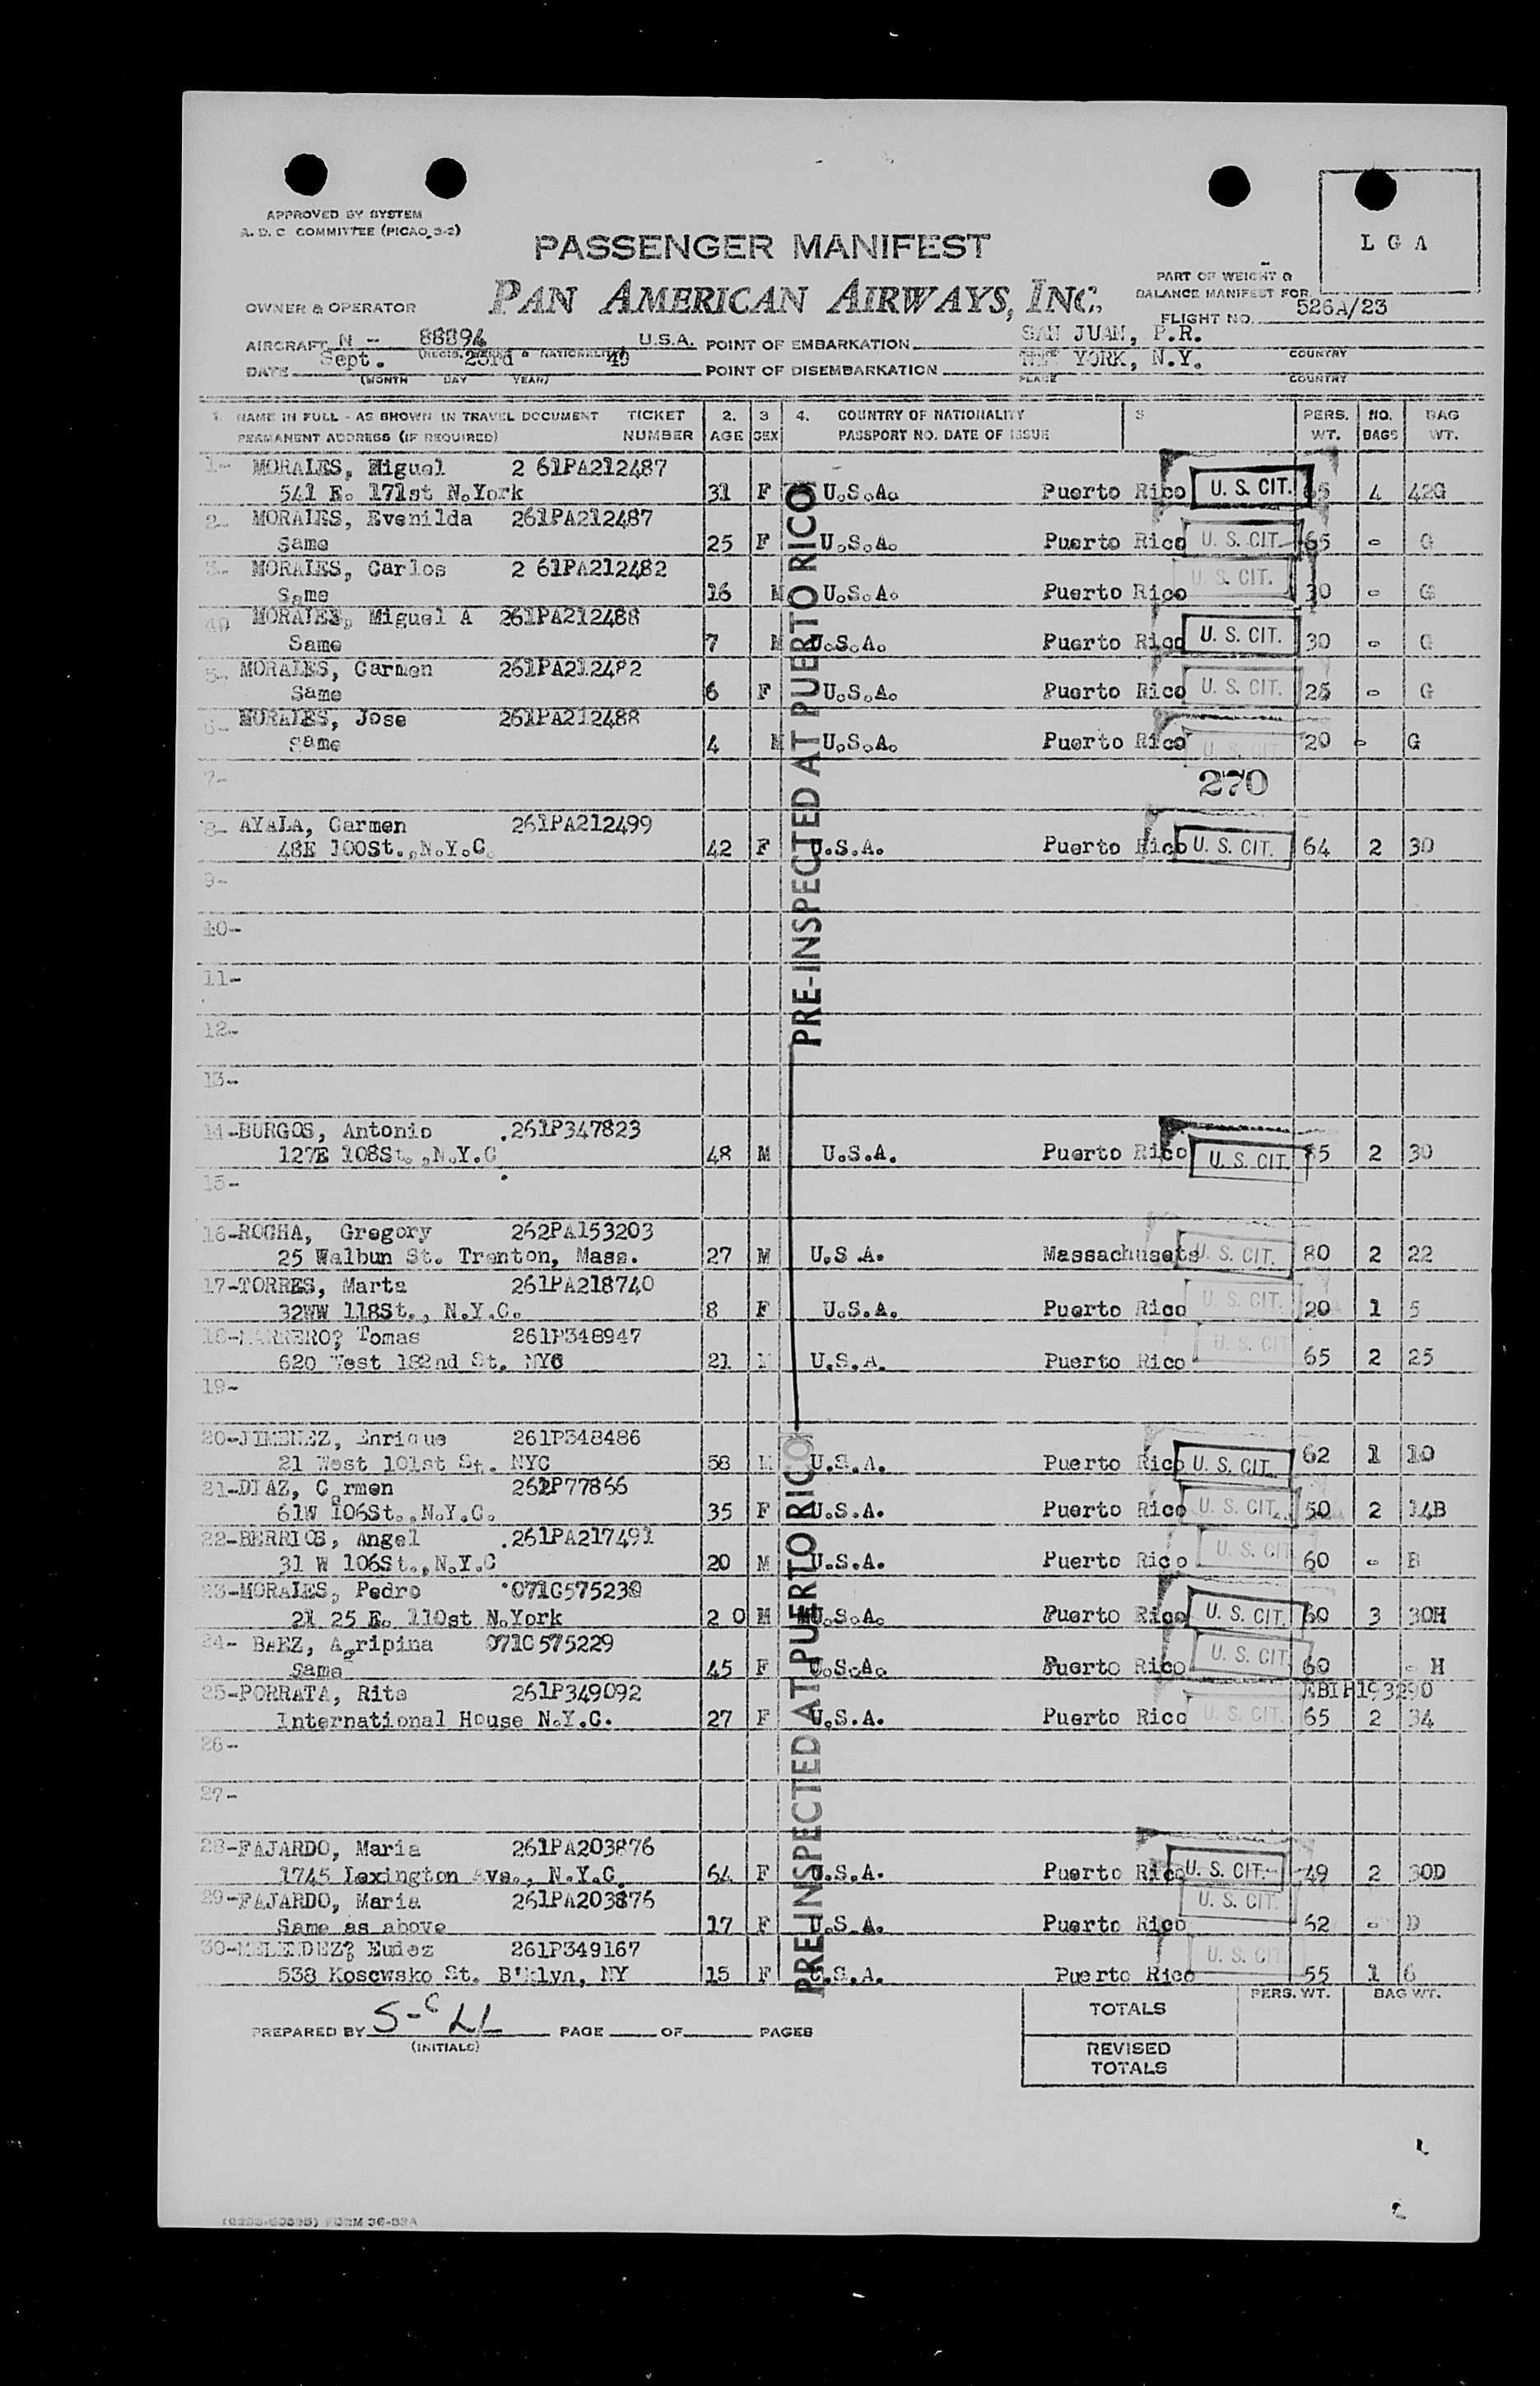 APPROVED BY SYSTEM
A. D. C COMMITTEE (PICAO 3-2)
L G A
PASSENGER MANIFEST
PART OF WEIGHT &
BALANCE MANIFEST FOR
PAN AMERICAN AIRWAYS, INC.
OWNER & OPERATOR
FLIGHT NO. 526A/23
AIRCRAFT N - 88894 U.S.A. POINT OF EMBARKATION SAN JUAN, P.R.
COUNTRY
DATE Sept. 23rd 49 POINT OF DISEMBARKATION NEW YORK, N.Y.
(MONTH DAY YEAR) PLACE COUNTRY
1. NAME IN FULL - AS SHOWN IN TRAVEL DOCUMENT TICKET 2. 3 4. COUNTRY OF NATIONALITY 5 PERS. NO. BAG
PERMANENT ADDRESS (IF REQUIRED) NUMBER AGE SEX PASSPORT NO. DATE OF ISSUE WT. BAGS WT.
1- MORALES, Miguel 2 61PA212487
541 E. 171st N.York 31 F U.S.A. Puerto Rico U. S. CIT. 65 4 42G
2- MORALES, Evenilda 261PA212487
Same 25 F U.S.A. Puerto Rico U. S. CIT. 65 - G
3- MORALES, Carlos 2 61PA212482
Same 16 M U.S.A. Puerto Rico U. S. CIT. 30 - G
MORALES, Miguel A 261PA212488
Same 7 M U.S.A. Puerto Rico U. S. CIT. 30 - G
5- MORALES, Carmen 261PA212482
Same 6 F U.S.A. Puerto Rico U. S. CIT. 25 - G
6- MORALES, Jose 261PA212488
Same 4 M U.S.A. Puerto Rico U. S. CIT 20 - G
7- 270
8- AYALA, Carmen 261PA212499
48E 100St.,N.Y.C. 42 F U.S.A. Puerto Rico U. S. CIT. 64 2 30
9-
10-
11-
12-
13-
14-BURGOS, Antonio .261P347823
127E 108St.,N.Y.C 48 M U.S.A. Puerto Rico U. S. CIT. 65 2 30
15-
16-ROCHA, Gregory 262PA153203
25 Walbun St. Trenton, Mass. 27 M U.S.A. Massachusets U. S. CIT. 80 2 22
17-TORRES, Marta 261PA218740
32WW 118St., N.Y.C. 8 F U.S.A. Puerto Rico U. S. CIT. 20 1 5
18-MARRERO? Tomas 261P348947
620 West 182nd St. NYC 21 M U.S.A. Puerto Rico U. S. CIT 65 2 25
19-
20-JIMENEZ, Enrique 261P348486
21 West 101st St. NYC 58 M U.S.A. Puerto Rico U. S. CIT. 62 1 10
21-DIAZ, Carmen 262P77866
61W 106St.,N.Y.C. 35 F U.S.A. Puerto Rico U. S. CIT. 50 2 14B
22-BERRIOS, Angel .261PA217491
31 W 106St.,N.Y.C 20 M U.S.A. Puerto Rico U. S. CIT 60 - B
23-MORALES, Pedro 071C575230
21 25 E. 110st N.York 2 0 M U.S.A. Puerto Rico U. S. CIT. 60 3 30H
24- BAEZ, Agripina 071C575229
Same 45 F U.S.A. Puerto Rico U. S. CIT 60 - H
25-PORRATA, Rita 261P349092 EBIH193290
International House N.Y.C. 27 F U.S.A. Puerto Rico U. S. CIT. 65 2 34
26-
27-
28-FAJARDO, Maria 261PA203876
1745 Lexington Ave., N.Y.C. 64 F U.S.A. Puerto Rico U. S. CIT. 49 2 30D
29-FAJARDO, Maria 261PA203876
Same as above 17 F U.S.A. Puerto Rico U. S. CIT. 52 - D
30-MELENDEZ? Eudez 261P349167
538 Koscwsko St. B'klyn, NY 15 F U.S.A. Puerto Rico U. S. CIT 55 1 6
PRE-INSPECTED AT PUERTO RICO
PRE-INSPECTED AT PUERTO RICO
PERS. WT. BAG WT.
TOTALS
PREPARED BY PAGE OF PAGES
(INITIALS)
REVISED
TOTALS